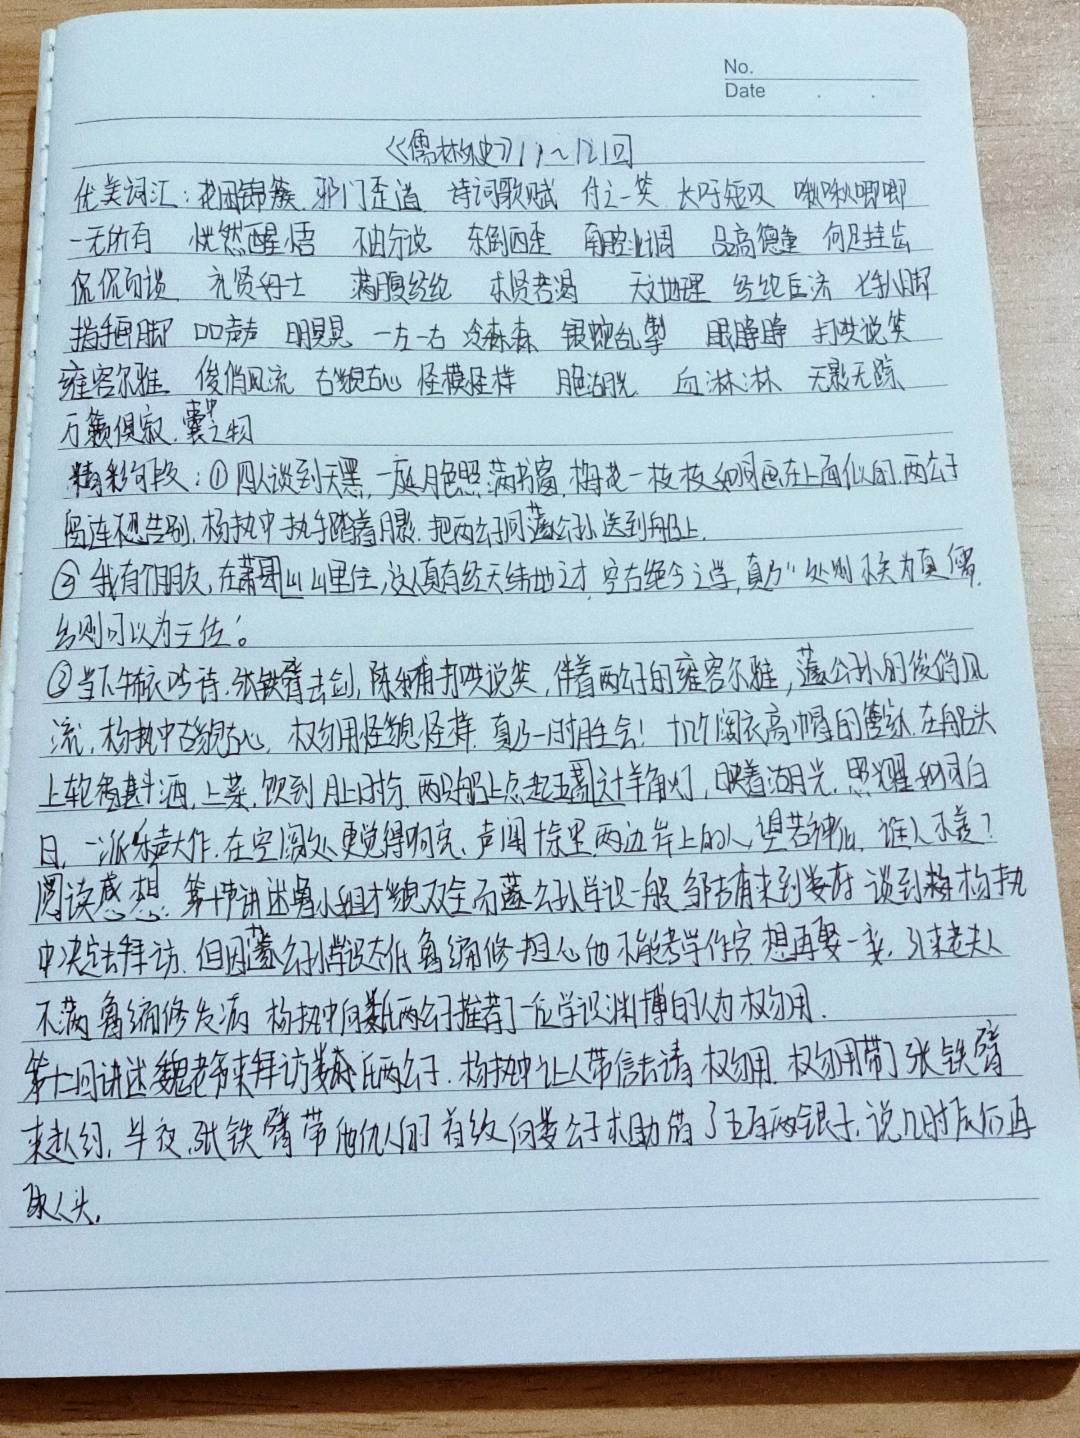 No.
Date
《儒林外史》11~12回
优美词汇：花团锦簇 邪门歪道 诗词歌赋 付之一笑 长吁短叹 啾啾唧唧
一无所有 恍然醒悟 不由分说 东倒西歪 南腔北调 品高德重 何足挂齿
侃侃而谈 礼贤好士 满腹经纶 求贤若渴 天文地理 经纶匡济 七手八脚
指手画脚 口口声声 明晃晃 一左一右 冷森森 银蛇乱掣 眼睁睁 打哄说笑
雍容尔雅 俊俏风流 古貌古心 怪模怪样 血淋淋 无影无踪
万籁俱寂 囊中之物
精彩句段：①四人谈到天黑，一庭月色照满书窗，梅花一枝枝如同画在上面似的，两公子
留连不想告别，杨执中执手踏着月影，把两公子同蘧公孙送到船上。
②我有个朋友，在萧山县山里住，这人真有经天纬地之才，空古绝今之学，真乃“处则不失为真儒，
出则可以为王佐”。
③当下牛布衣吟诗，张铁臂击剑，陈和甫打哄说笑，伴着两公子的雍容尔雅，蘧公孙的俊俏风
流，杨执中古貌古心，权勿用怪貌怪样，真乃一时胜会！十几个阔衣高帽的管家，在船头
上轮番斟酒，上菜，饮到月上时分，两只船上点起五六十盏羊角灯，映着湖光，照耀如同白
日，一派乐声大作，在空阔处更觉得响亮、声闻十余里，两边岸上的人，望若神仙，谁人不羡？
阅读感想：第十一节讲述鲁小姐才貌双全而蘧公孙学识一般 邹吉甫来到娄府 谈到杨执
中决定去拜访 但因蘧公孙学识太低鲁编修担心他不能考学作官 想再娶一妾，引来老夫人
不满 鲁编修发病 杨执中向娄氏两公子推荐了一位学识渊博的人为权勿用.
第十二回讲述魏老爷来拜访娄氏两公子，杨执中让人带信去请权勿用，权勿用带了张铁臂
来赴约，半夜，张铁臂带他仇人的首级向娄公子求助借了五百两银子，说几时辰后再
取人头。